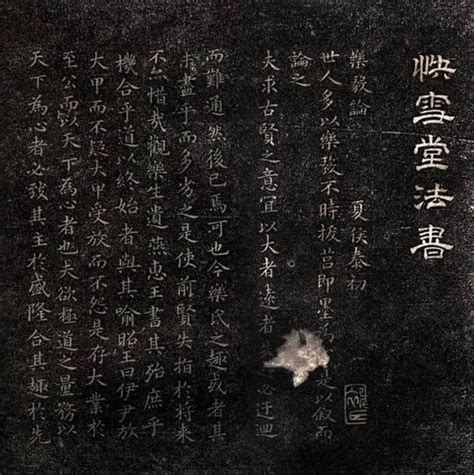 快雪堂法書
樂毅論 夏侯泰初
世人多以樂毅不時拔莒即墨為是以叙而
論之
夫求古賢之意宜以大者遠者必迂迴
而難通然後已焉可也今樂氏之趣或者其
未盡乎而多劣之是使前賢失指於將來
不亦惜哉觀樂生遺燕惠王書其殆庶乎
機合乎道以終始者與其喻昭王曰伊尹放
大甲而不疑大甲受放而不怨是存大業於
至公而以天下為心者也夫欲極道之量務以
天下為心者必致其主於盛隆合其趣於先